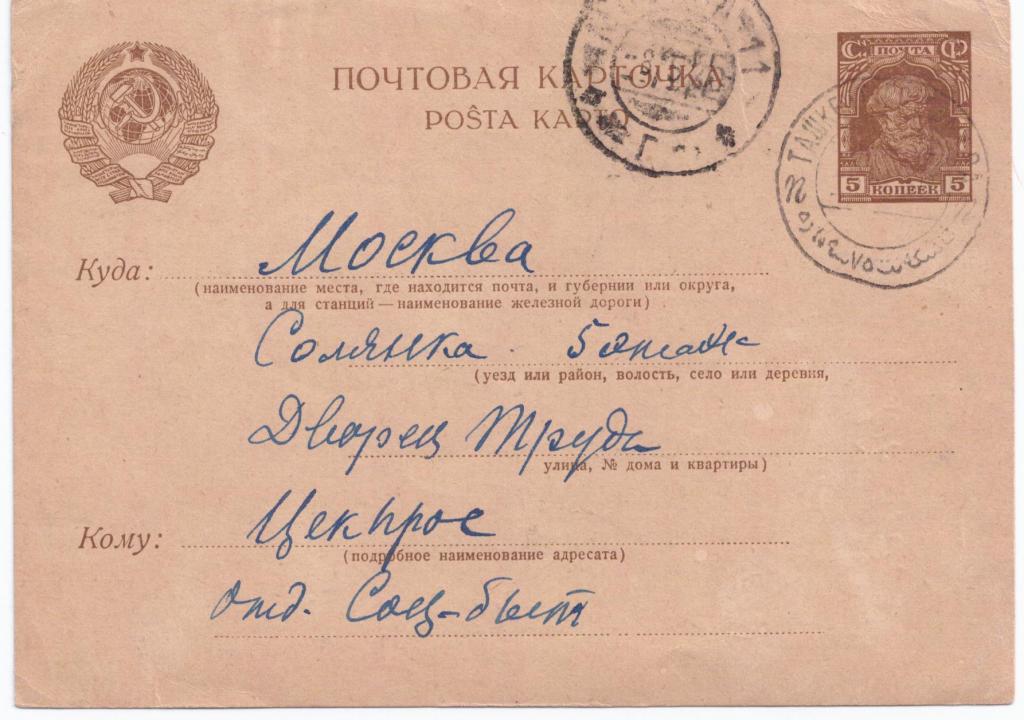 ПОЧТОВАЯ КАРТОЧКА
POŜTA KARTO
С. ПОЧТА Ф
5 КОПЕЕК 5
11
Г.
ТАШКЕ
Куда: Москва
(наименование места, где находится почта, и губернии или округа,
а для станций — наименование железной дороги)
Солянка 5 этаж
(уезд или район, волость, село или деревня,
Дворец Труда
улица, № дома и квартиры)
Кому: Цекпрос
(подробное наименование адресата)
отд. Соц-быт